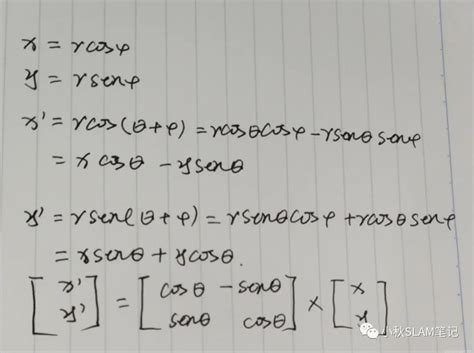 x = rcosφ
y = rsenφ
x' = rcos(θ+φ) = rcosθcosφ - rsenθsenφ
= xcosθ - ysenθ
y' = rsen(θ+φ) = rsenθcosφ + rcosθsenφ
= xsenθ + ycosθ.
[x' y'] = [cosθ -senθ senθ cosθ] × [x y]
小秋SLAM笔记